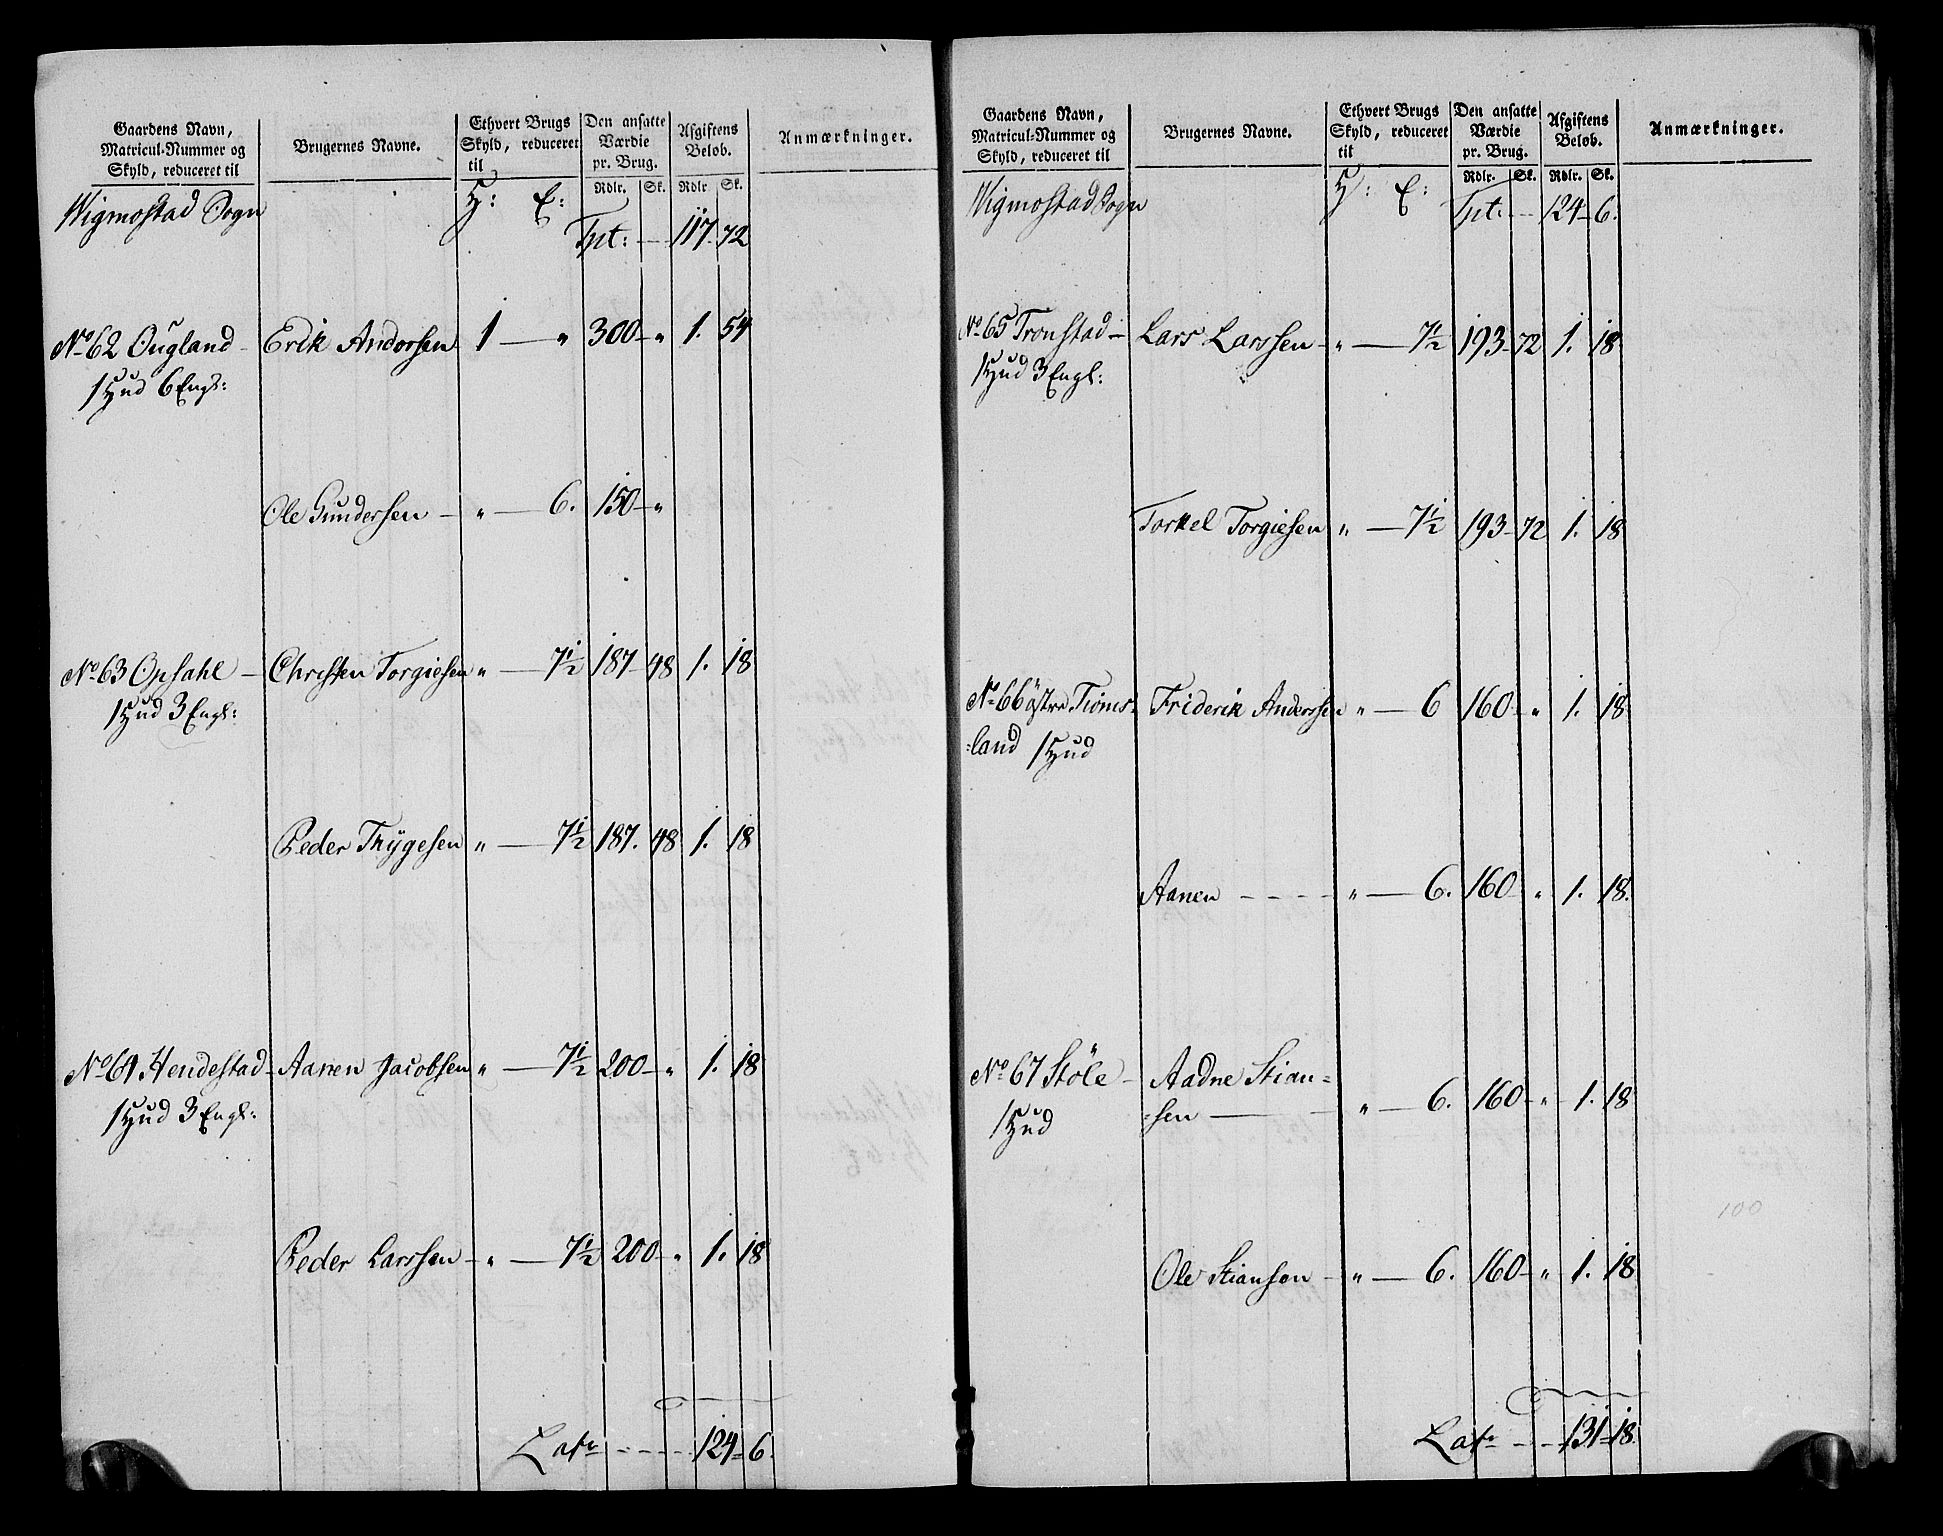 Gaardens Navn, Matricul-Nummer og Skyld, reduceret til | Brugernes Navne. | Ethvert Brugs Skyld, reduceret til | Den ansatte Værdie pr. Brug. | Afgiftens Beløb. | Anmærkninger.
Rdlr. Sk. Rdlr Sk.
Wigmostad Sogn H: E:
Tpt: — 117 72
No 62 Ougland - Erik Andersen 1 — " 300 — " 1. 54
1 Hud 6 Engl:
Ole Gundersen — " — 6. 150 — "
No 63 Opsahl — Christen Torgiesen " — 7½ 187 - 48 1. 18
1 Hud 3 Engl:
Peder Thÿgesen " — 7½ 187. 48 1. 18
No 64 Hendestad - Aanen Jacobsen " — 7½ 200 — " 1. 18
1 Hud 3 Engl:
Peder Larssen - " — 7½ 200 - " 1. 18
Lats - - - - 124 - 6.
Gaardens Navn, Matricul-Nummer og Skyld, reduceret til | Brugernes Navne. | Ethvert Brugs Skyld, reduceret til | Den ansatte Værdie pr. Brug. | Afgiftens Beløb. | Anmærkninger.
Rdlr. Sk. Rdlr. Sk.
Wigmostad Sogn H: E: Tpt: - - 124 - 6.
No 65 Tronstad — Lars Larssen - " — 7½ 193 - 72 1. 18
1 Hud 3 Engl:
Torkel Torgiesen " — 7½ 193 - 72 1. 18
No 66 östre Tioms- Friderik Anderssen " — 6 160 - " 1. 18
-land 1 Hud
Aanen - - - - " — 6. 160 - " 1. 18.
No 67 Stöle - Aadne Stian=
1 Hud =sen — " — 6. 160 - " 1. 18
100
Ole Stiansen - " — 6. 160 - " 1. 18
Lats - - 131 - 18.